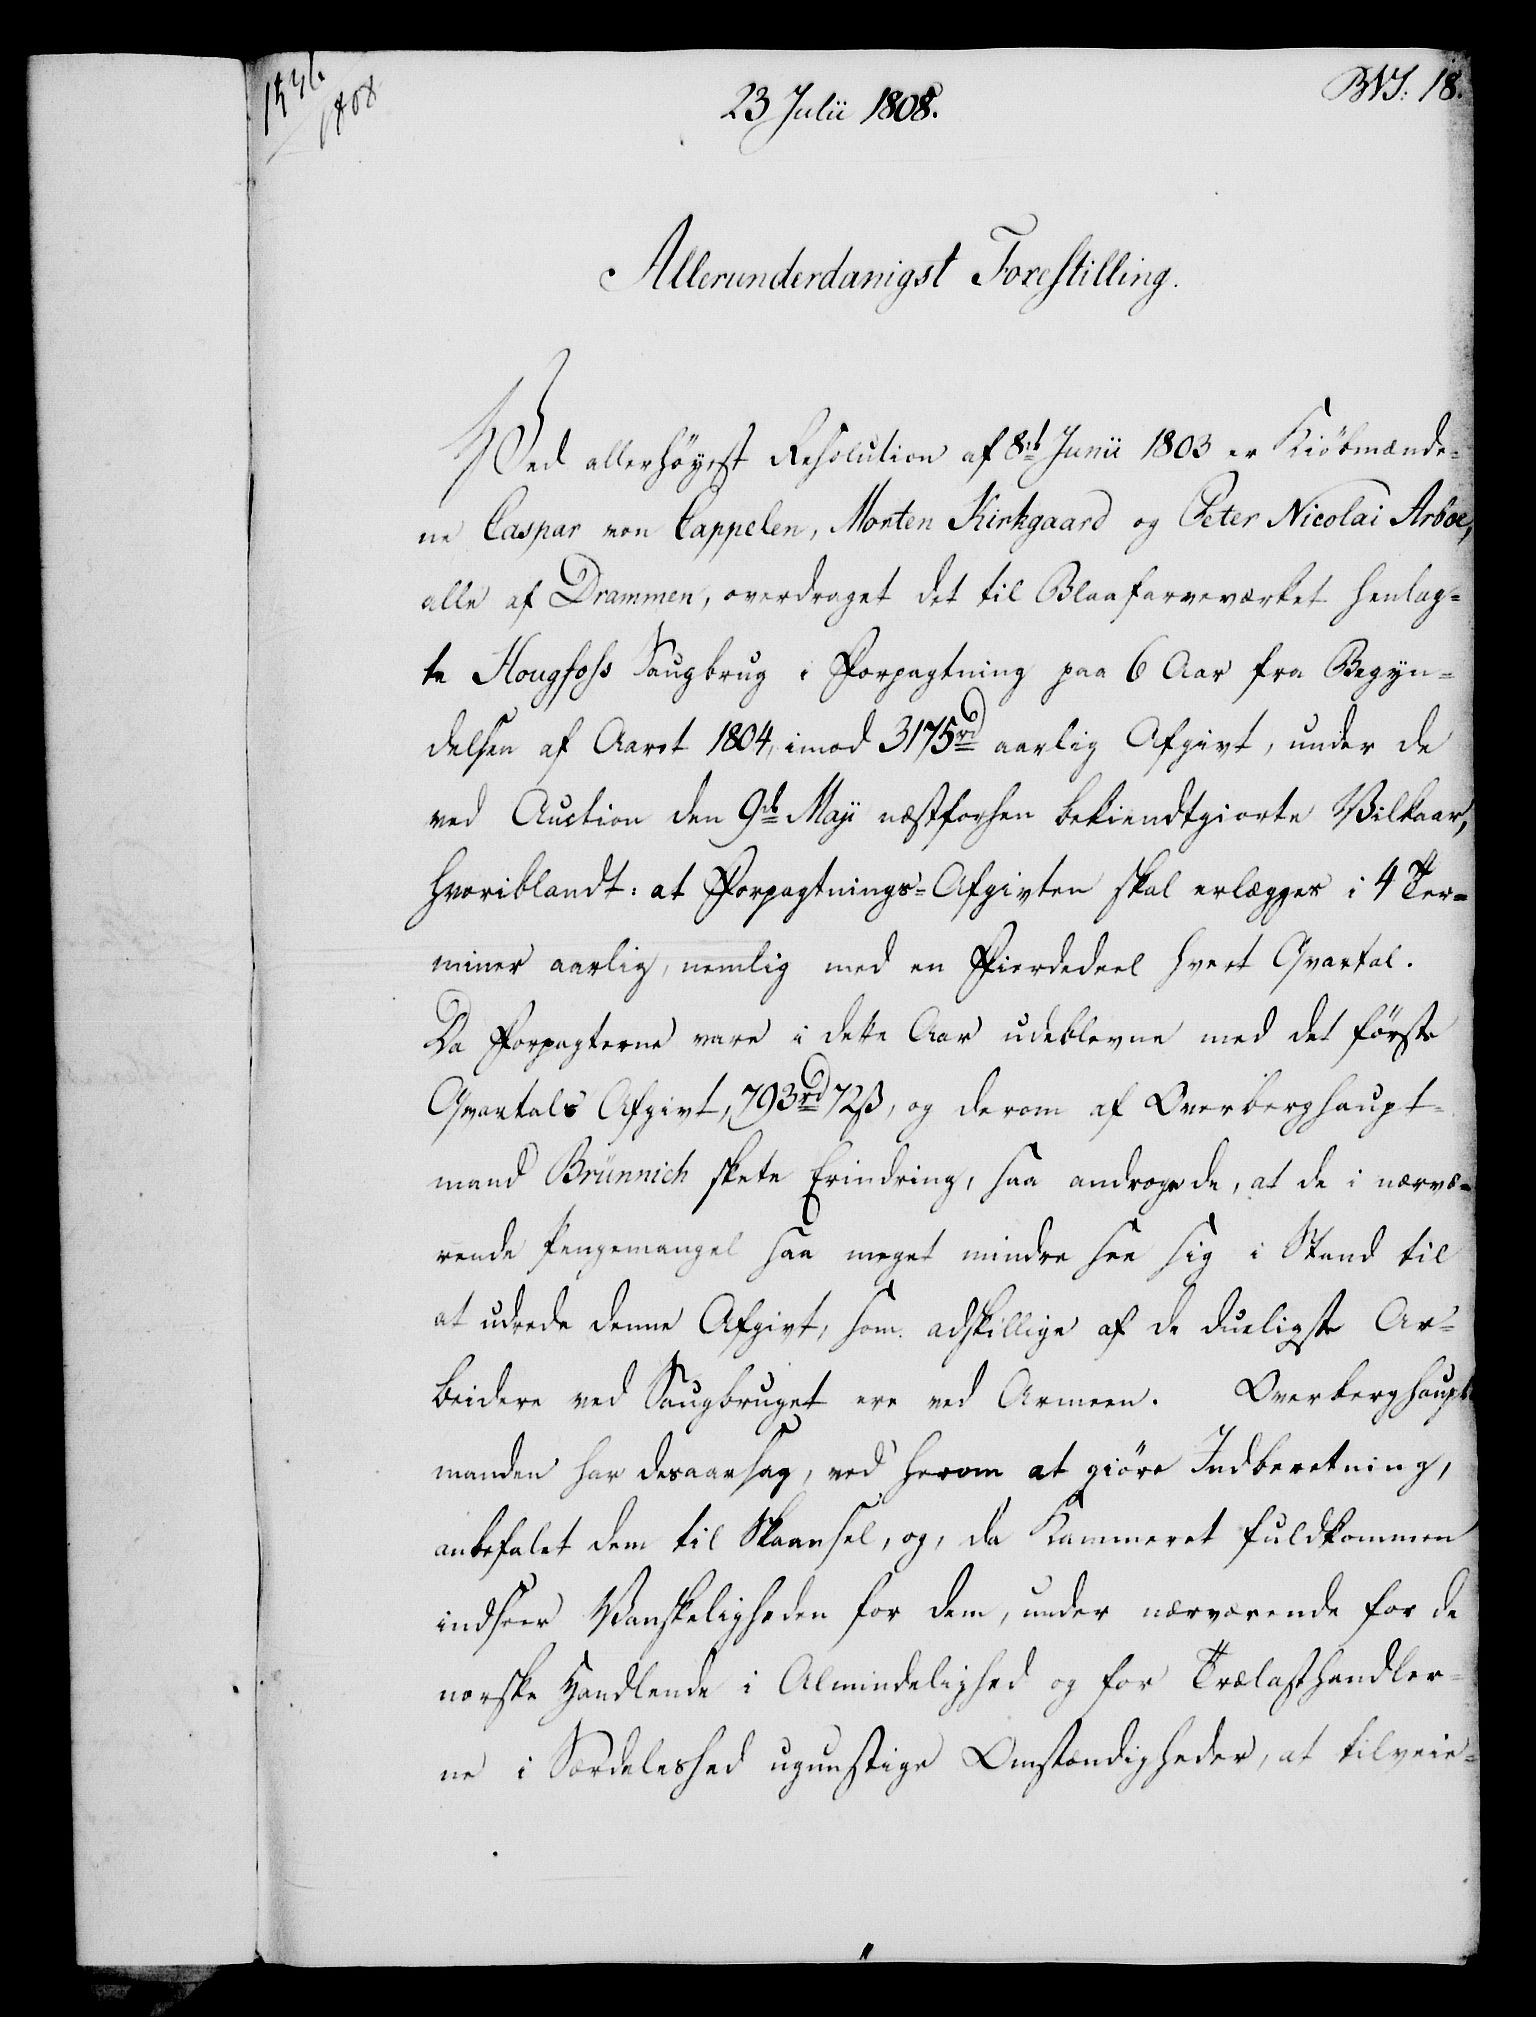 1536
1808
BVJ: 18.
23 Julii 1808.
Allerunderdanigst Forestilling.
Ved allerhöyest Resolution af 8de Junii 1803 er Kiöbmænde-
ne Caspar von Cappelen, Morten Kirkgaard og Peter Nicolai Arboe,
alle af Drammen, overdraget det til Blaafarveværket henlag-
te Hougfoss Saugbrug i Forpagtning paa 6 Aar fra Begyn-
delsen af Aaret 1804, imod 3175rd aarlig Afgivt, under de
ved Auction den 9de Maji næstforhen bekiendtgiorte Vilkaar,
hvoriblandt: at Forpagtnings-Afgivten skal erlægges i 4 Ter-
miner aarlig, nemlig med en Fierdedeel hvert Qvartal.
Da Forpagterne vare i dette Aar udeblevne med det förste
Qvartals Afgivt, 793rd 72ß, og derom af Overberghaupt-
mand Brünnich skete Erindring, saa androge de, at de i nærvæ-
rende Pengemangel saa meget mindre see sig i Stand til
at udrede denne Afgivt, som adskillige af de dueligste Ar-
beidere ved Saugbruget ere ved Armeen. Overberghaupt-
manden har desaarsag, ved herom at giöre Indberetning,
anbefalet dem til Skaansel, og, da Kammeret fuldkommen
indseer Vanskeligheden for dem, under nærværende for de
norske Handlende i Almindelighed og for Trælasthandler-
ne i Særdeleshed ugunstige Omstændigheder, at tilveie-